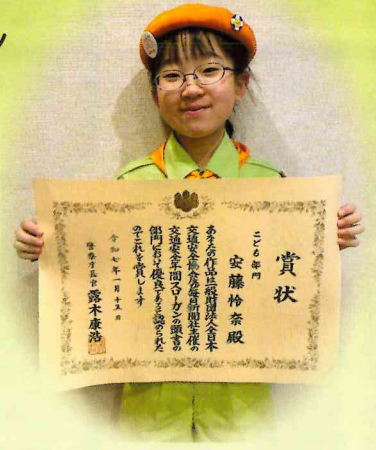 賞状
こども部門
安藤怜奈殿
あなたの作品は一般財団法人全日本
交通安全協会㈱毎日新聞社主催の
交通安全年間スローガンの頭書の
部門において優良であると認められた
のでこれを賞します
令和七年一月十五日
警察庁長官 露木康浩